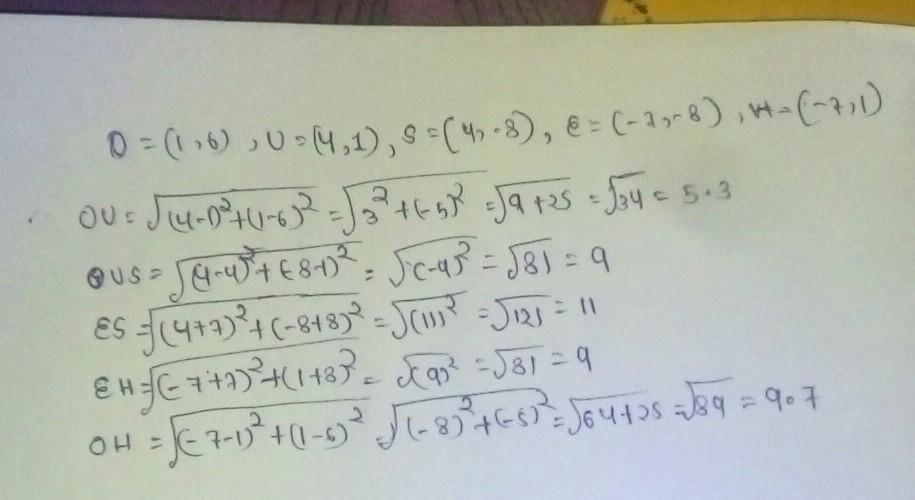 O = (1,6), U = (4,1), S = (4,-8), E = (-7,-8), H = (-7,1)
OU = √(4-1)²+(1-6)² = √3²+(-5)² = √9+25 = √34 = 5.3
US = √(4-4)²+(-8-1)² = √(-9)² = √81 = 9
ES = √(4+7)²+(-8+8)² = √(11)² = √121 = 11
EH = √(-7+7)²+(1+8)² = √(9)² = √81 = 9
OH = √(-7-1)²+(1-6)² √(-8)²+(-5)² = √64+25 = √89 = 9.7